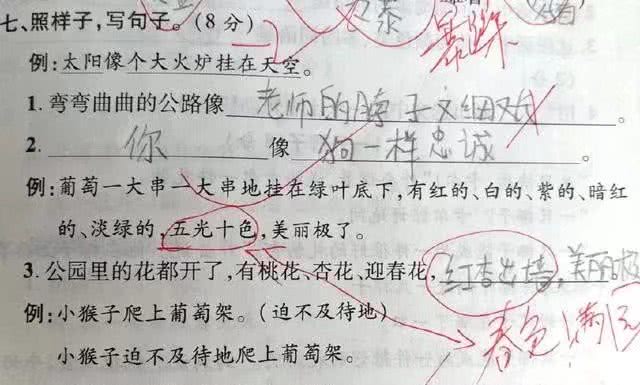 七、照样子，写句子。(8分) -2
例:太阳像个大火炉挂在天空。
1. 弯弯曲曲的公路像 老师的脖子又细又
2. 你 像 狗一样忠诚 。
例:葡萄一大串一大串地挂在绿叶底下,有红的、白的、紫的、暗红
的、淡绿的,五光十色,美丽极了。
3. 公园里的花都开了,有桃花、杏花、迎春花,红杏出墙,美丽极
例:小猴子爬上葡萄架。(迫不及待地)
春色满园
小猴子迫不及待地爬上葡萄架。